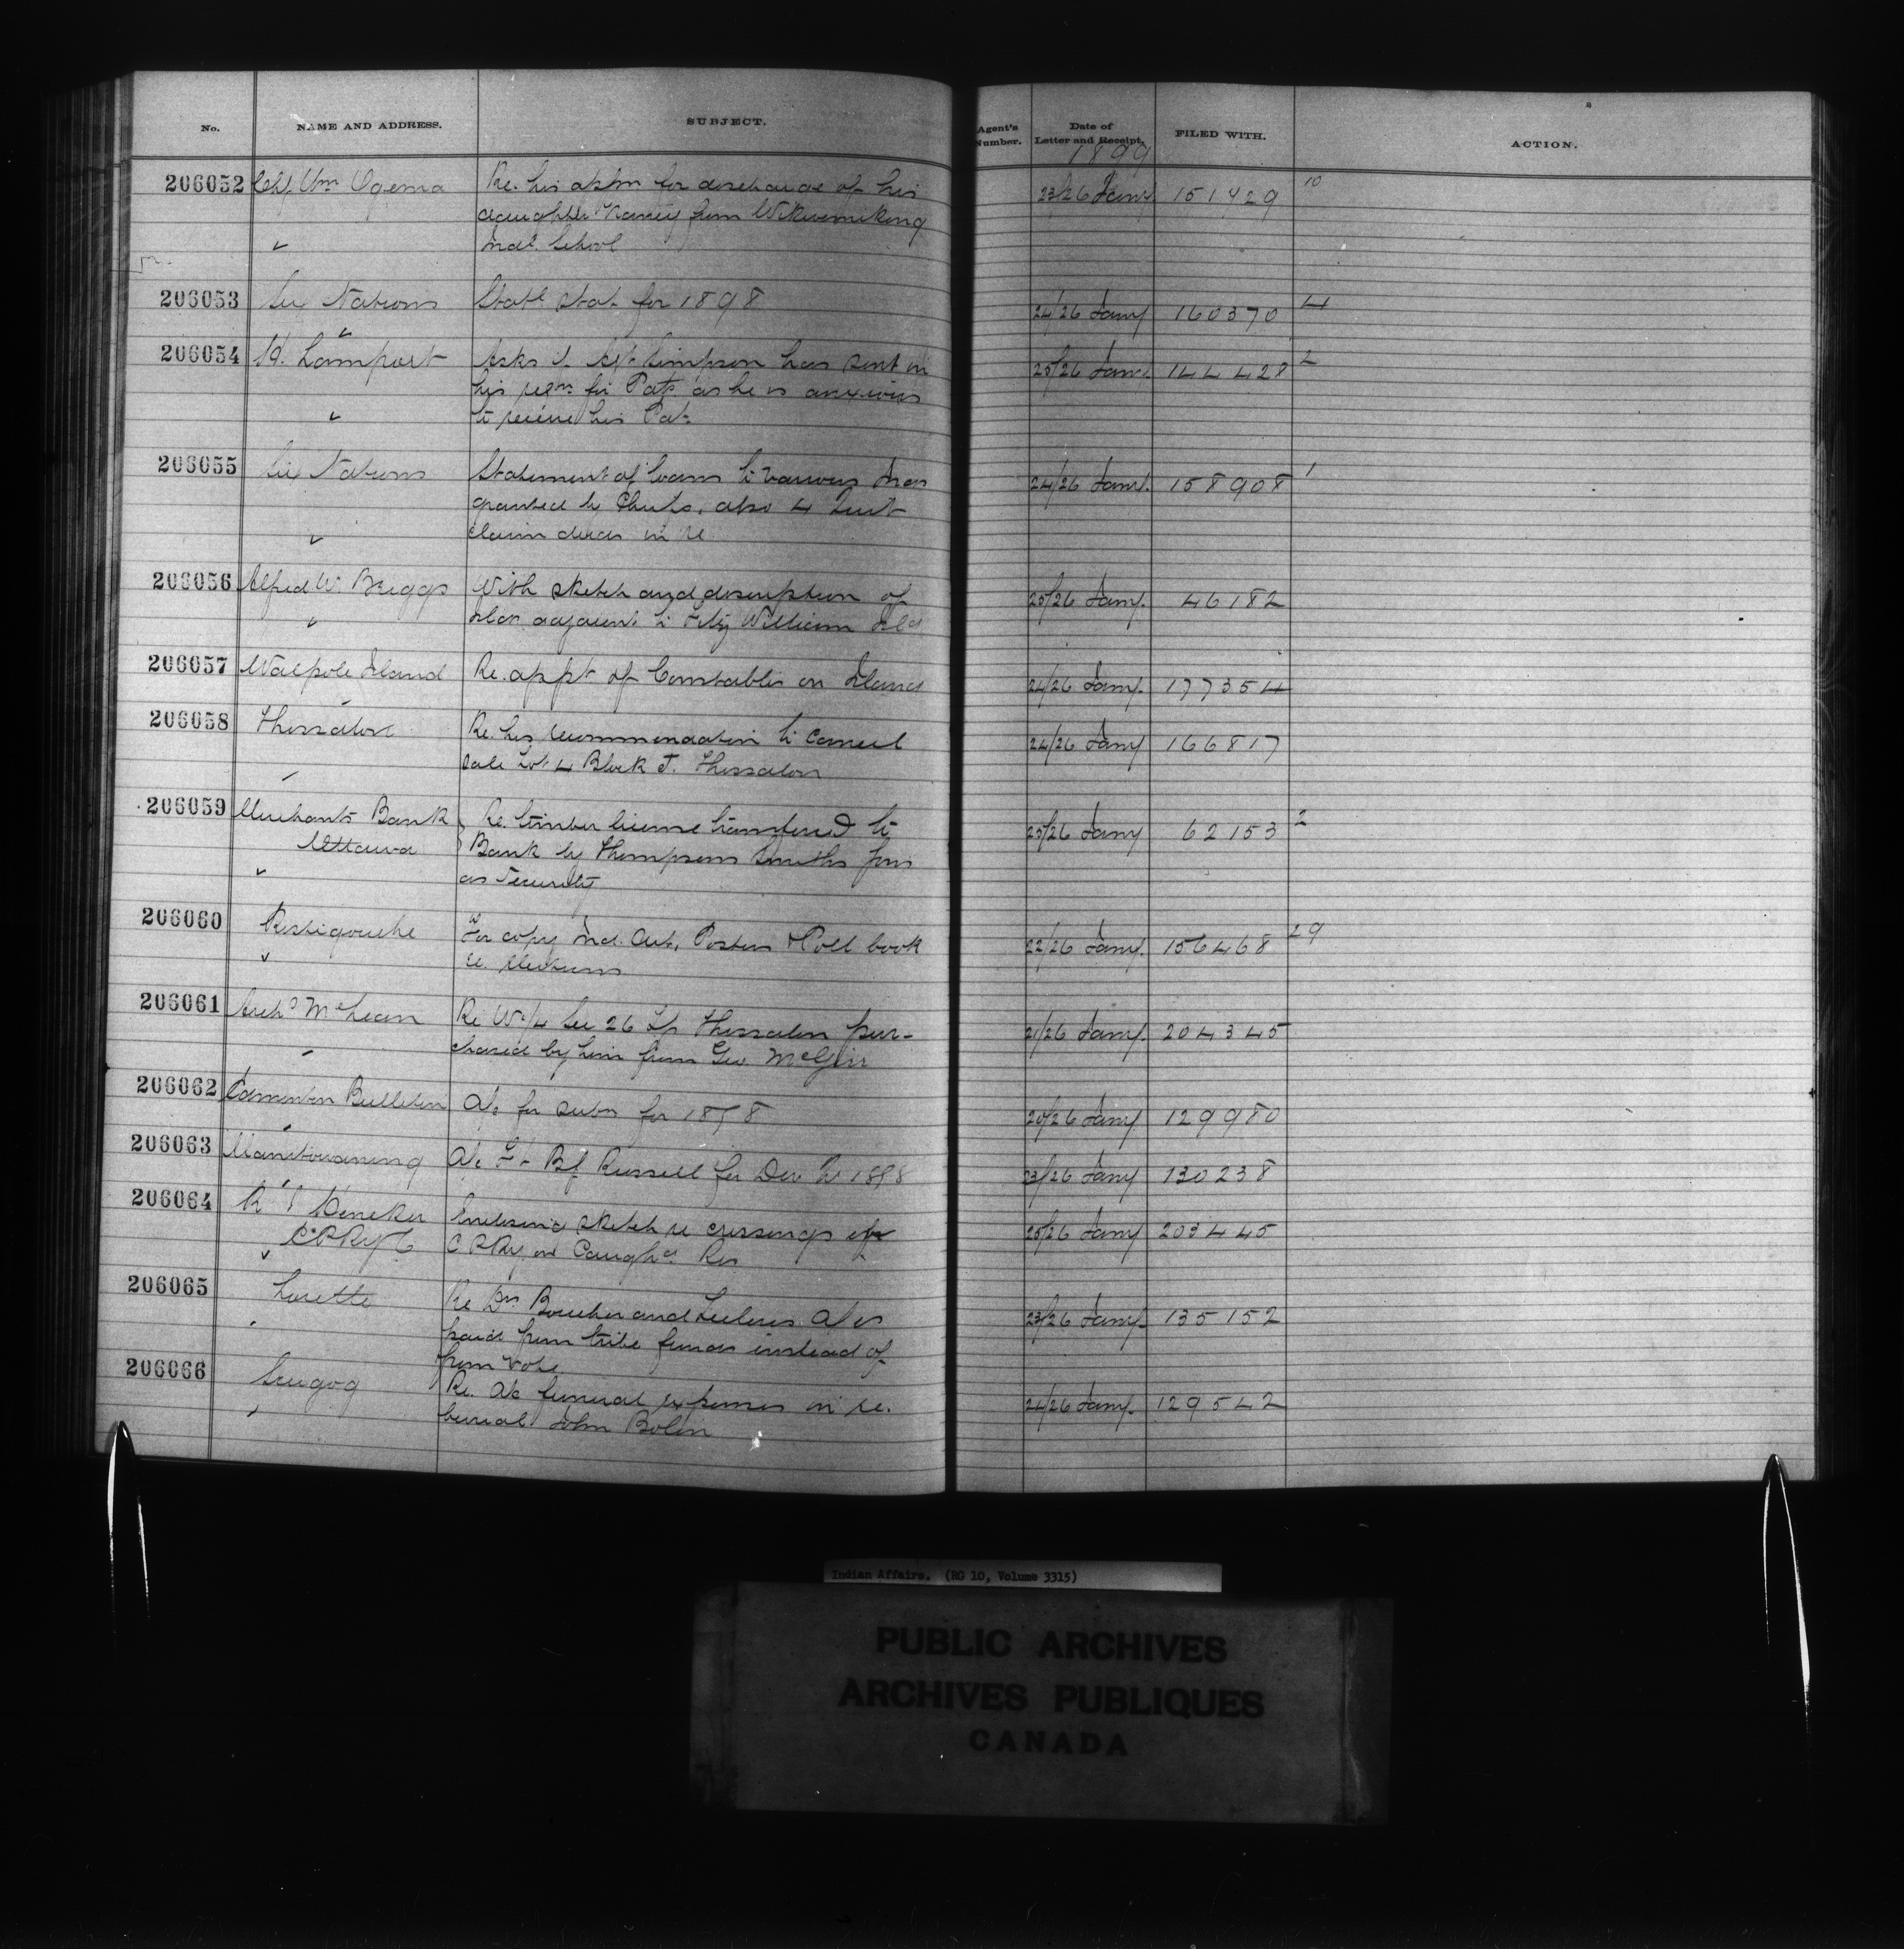 No. NAME AND ADDRESS. SUBJECT. Agent's Number. Date of Letter and Receipt. FILED WITH. ACTION.
1899
206052 Chf. Wm Ogema Re. his appln for discharge of his 23/26 Jany. 151429 10
daughter Nancy from Wikwemikong
Indl. School
206053 Six Nations Statl Stat. for 1898 24/26 Jany 160370 4
206054 H. Lamport Asks if Agt Simpson has sent in 25/26 Jany. 144428 2
his retn. for Pat. as he is anxious
to receive his Pat.
206055 Six Nations Statement of loans to various Inds 24/26 Jany. 158908 1
granted by Chiefs, also 4 Quit
claim deeds in re
206056 Alfred W. Briggs With sketch and description of 25/26 Jany. 46182
Islds adjacent to Fitz William Isld
206057 Walpole Island Re. appt of Constables on Island 24/26 Jany. 177354
206058 Thessalon Re. his recommendation to cancel 24/26 Jany 166817
sale Lot 4 Block J. Thessalon
206059 Merchants Bank Re. timber license transferred to 25/26 Jany 62153 2
Ottawa Bank by Thompson Smiths Sons
as Security
206060 Restigouche For copy Ind. Act, Posters & Poll book 22/26 Jany. 156468 29
re. elections
206061 Archd McLean Re W½ Sec 26 Tp Thessalon pur- 21/26 Jany. 204345
chased by him from Geo. McGirr
206062 Edmonton Bulletin A/c for subn for 1898 20/26 Jany 129980
206063 Manitowaning A/c Russell for Dec 1898 23/26 Jany 130238
206064 R Heneker Enclosing sketch re crossings of 25/26 Jany 203445
C.P.Ry C.P.Ry on Caugha. Res
206065 Lorette Re Drs Boucher and A/cs 23/26 Jany. 135152
paid from tribe funds instead of
from vote.
206066 Scugog Re. A/c funeral expenses in re. 24/26 Jany. 129542
burial John Bolin
Indian Affairs. (RG 10, Volume 3315)
PUBLIC ARCHIVES
ARCHIVES PUBLIQUES
CANADA